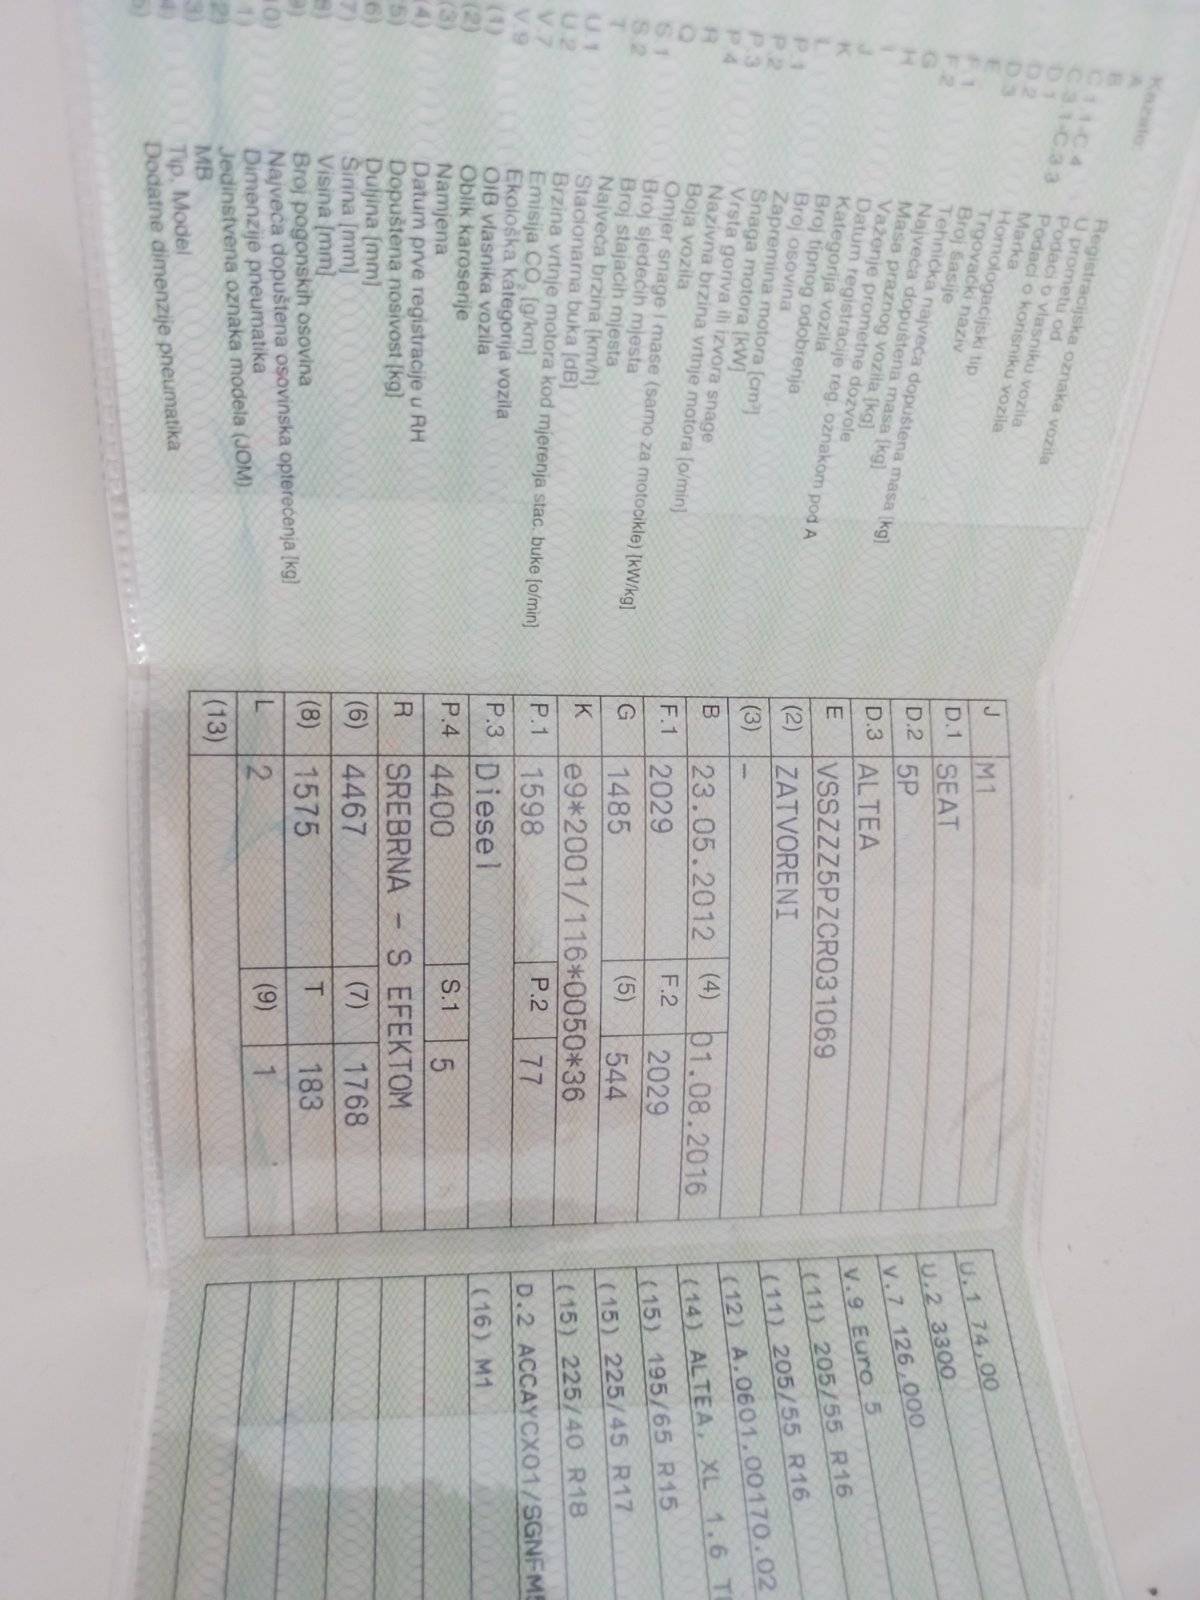 Kazalo:
A Registracijska oznaka vozila
B U prometu od
C.1.1-C.4 Podaci o vlasniku vozila
C.3.1-C.3.3 Podaci o korisniku vozila
D.1 Marka
D.2 Homologacijski tip
D.3 Trgovački naziv
E Broj šasije
F.1 Tehnička najveća dopuštena masa [kg]
F.2 Najveća dopuštena masa [kg]
G Masa praznog vozila [kg]
H Važenje prometne dozvole
I Datum registracije reg. oznakom pod A
J Kategorija vozila
K Broj tipnog odobrenja
L Broj osovina
P.1 Zapremina motora [cm³]
P.2 Snaga motora [kW]
P.3 Vrsta goriva ili izvora snage
P.4 Nazivna brzina vrtnje motora [o/min]
R Boja vozila
Q Omjer snage i mase (samo za motocikle) [kW/kg]
S.1 Broj sjedećih mjesta
S.2 Broj stajaćih mjesta
T Najveća brzina [km/h]
U.1 Stacionarna buka [dB]
U.2 Brzina vrtnje motora kod mjerenja stac. buke [o/min]
V.7 Emisija CO₂ [g/km]
V.9 Ekološka kategorija vozila
(1) OIB vlasnika vozila
(2) Oblik karoserije
(3) Namjena
(4) Datum prve registracije u RH
(5) Dopuštena nosivost [kg]
(6) Duljina [mm]
(7) Širina [mm]
(8) Visina [mm]
(9) Broj pogonskih osovina
Najveća dopuštena osovinska opterećenja [kg]
Dimenzije pneumatika
Jedinstvena oznaka modela (JOM)
MB
Tip, Model
Dodatne dimenzije pneumatika
J M1
D.1 SEAT
D.2 5P
D.3 ALTEA
E VSSZZZ5PZCR031069
(2) ZATVORENI
(3) –
B 23.05.2012 (4) 01.08.2016
F.1 2029 F.2 2029
G 1485 (5) 544
K e9*2001/116*0050*36
P.1 1598 P.2 77
P.3 Diesel
P.4 4400 S.1 5
R SREBRNA - S EFEKTOM
(6) 4467 (7) 1768
(8) 1575 T 183
L 2 (9) 1
(13)
U.1 74,00
U.2 3300
V.7 126,000
V.9 Euro 5
(11) 205/55 R16
(11) 205/55 R16
(12) A.0601.00170.02
(14) ALTEA, XL 1.6
(15) 195/65 R15
(15) 225/45 R17
(15) 225/40 R18
D.2 ACCAYCX01/SGNFM5
(16) M1